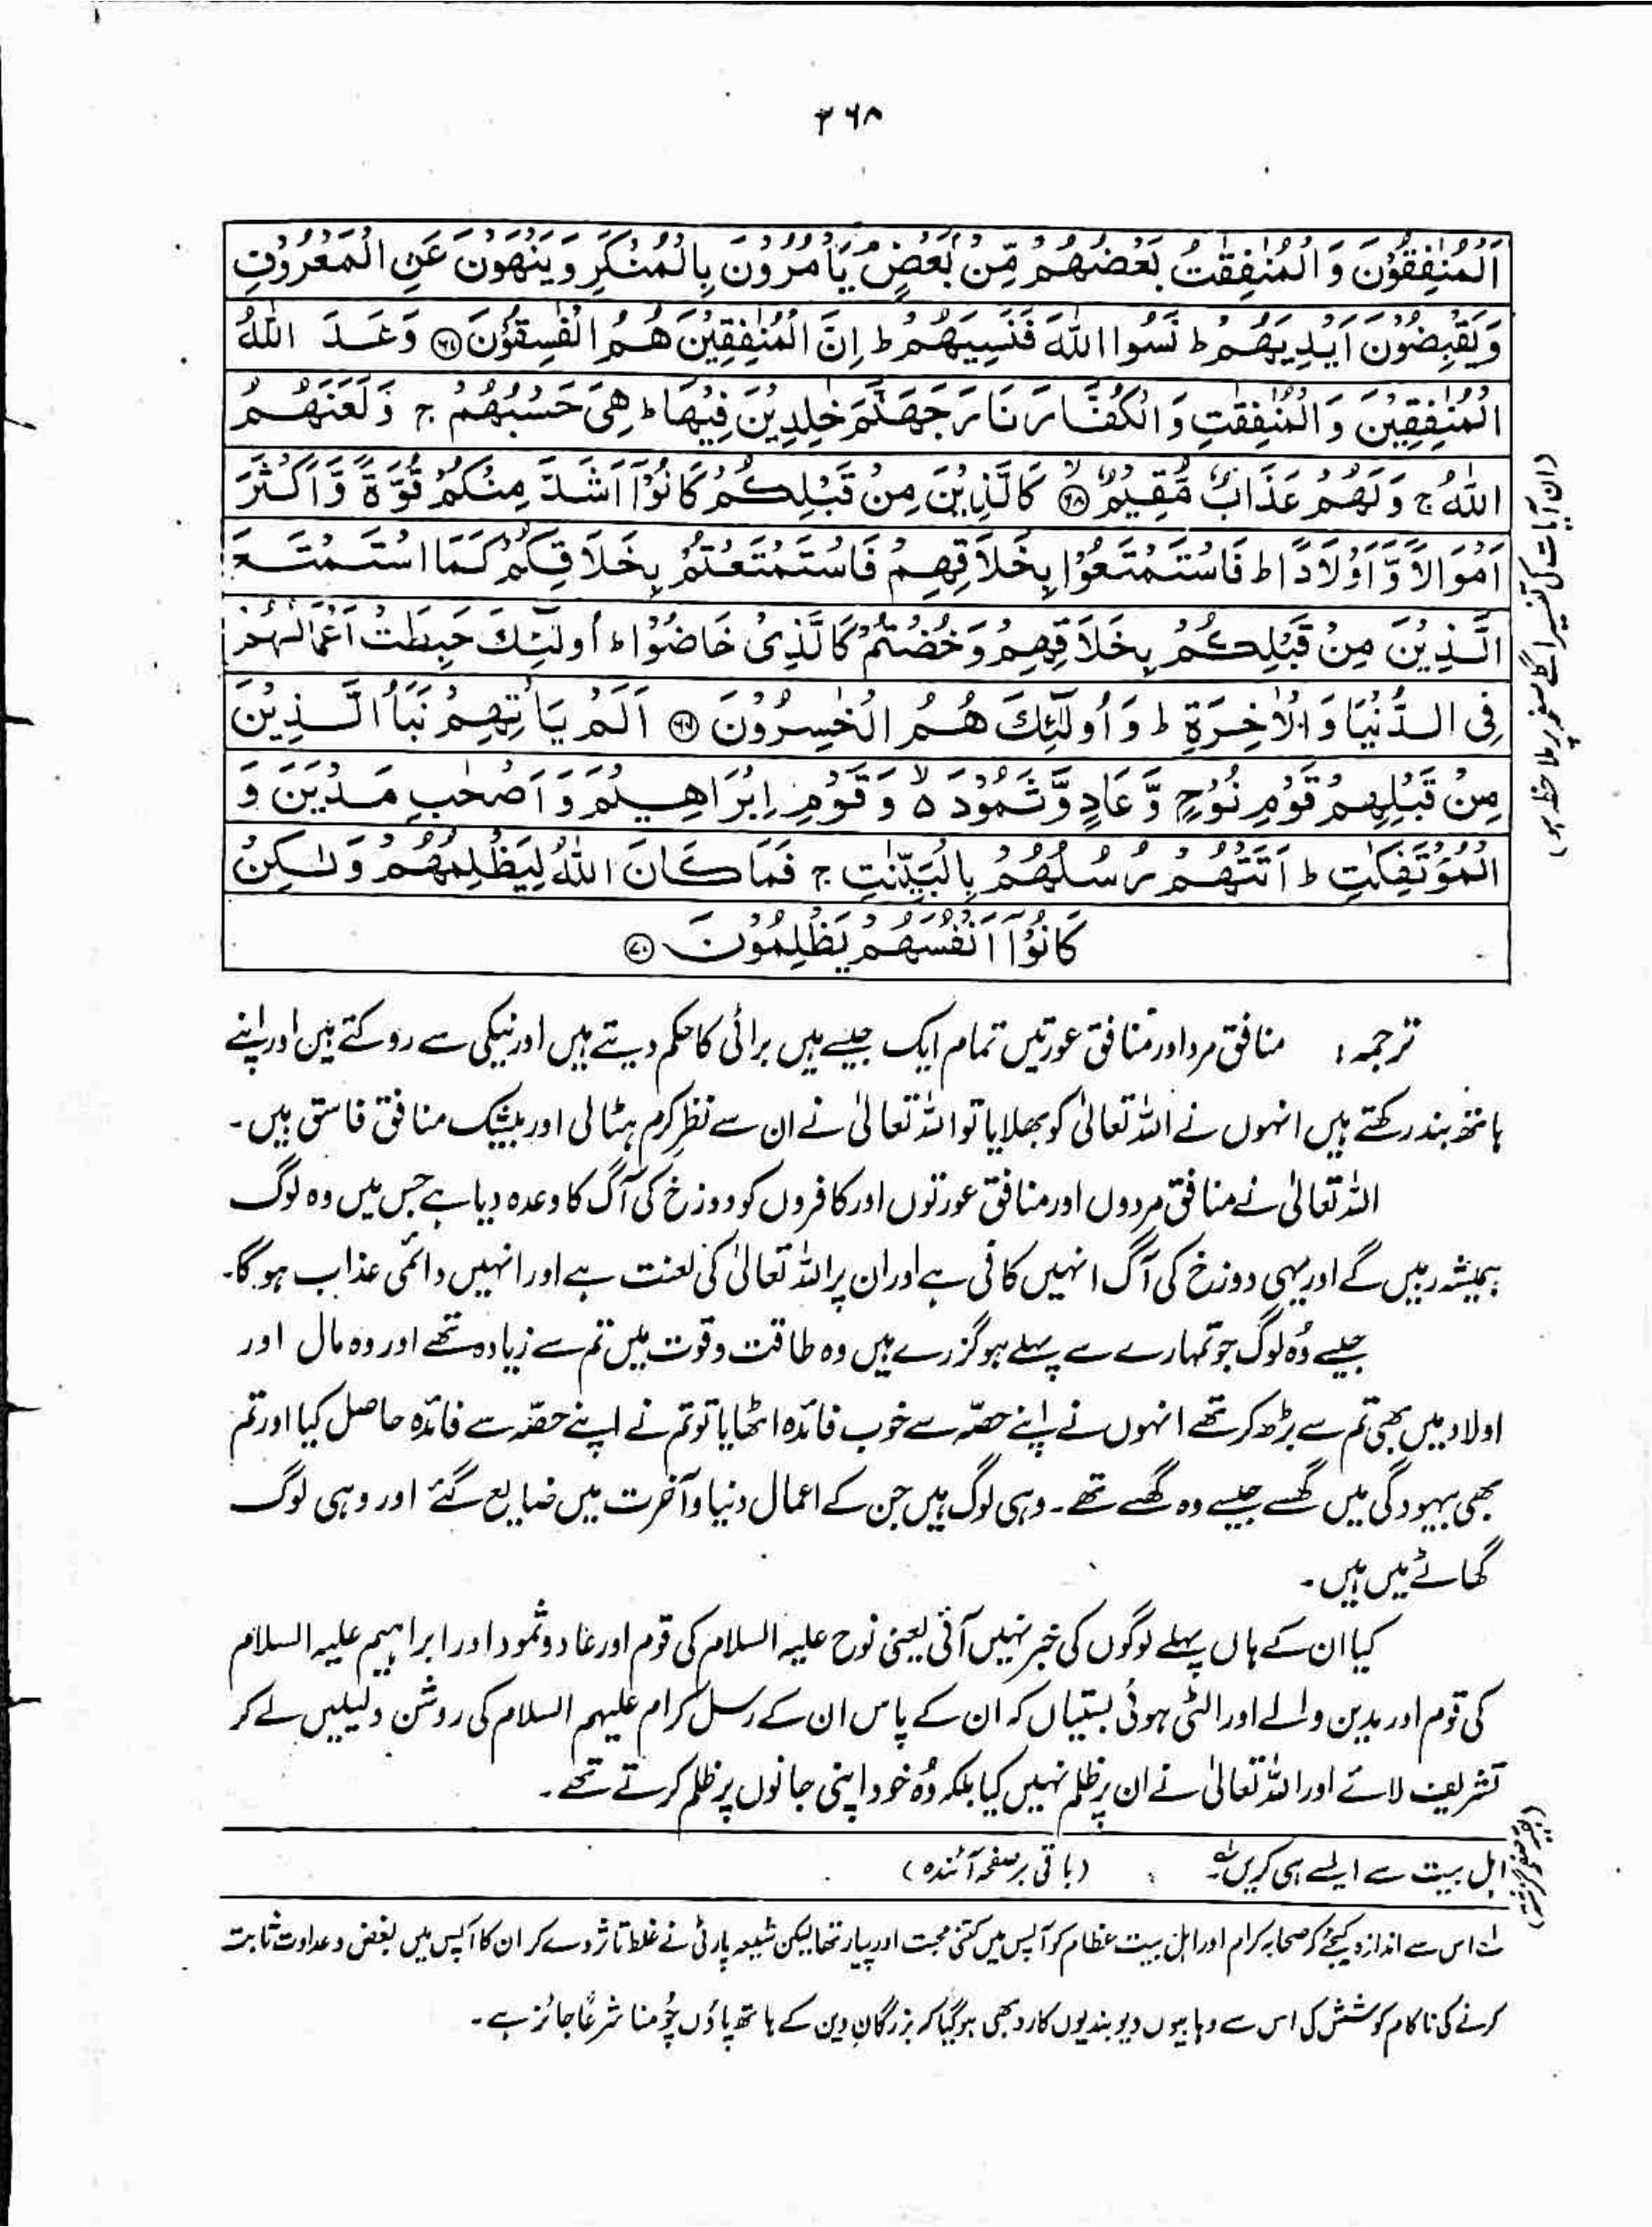 ۳۶۸
اَلْمُنٰفِقُوْنَ وَ الْمُنٰفِقٰتُ بَعْضُهُمْ مِّنْۢ بَعْضٍ ۘ یَاْمُرُوْنَ بِالْمُنْكَرِ وَ یَنْهَوْنَ عَنِ الْمَعْرُوْفِ
وَ یَقْبِضُوْنَ اَیْدِیَهُمْ ط نَسُوا اللّٰهَ فَنَسِیَهُمْ ط اِنَّ الْمُنٰفِقِیْنَ هُمُ الْفٰسِقُوْنَ ۝۶۷ وَعَدَ اللّٰهُ
الْمُنٰفِقِیْنَ وَ الْمُنٰفِقٰتِ وَ الْكُفَّارَ نَارَ جَهَنَّمَ خٰلِدِیْنَ فِیْهَا ط هِیَ حَسْبُهُمْ ج وَ لَعَنَهُمُ
اللّٰهُ ج وَ لَهُمْ عَذَابٌ مُّقِیْمٌ ۙ۝۶۸ كَالَّذِیْنَ مِنْ قَبْلِكُمْ كَانُوْۤا اَشَدَّ مِنْكُمْ قُوَّةً وَّ اَكْثَرَ
اَمْوَالًا وَّ اَوْلَادًا ط فَاسْتَمْتَعُوْا بِخَلَاقِهِمْ فَاسْتَمْتَعْتُمْ بِخَلَاقِكُمْ كَمَا اسْتَمْتَعَ
الَّذِیْنَ مِنْ قَبْلِكُمْ بِخَلَاقِهِمْ وَ خُضْتُمْ كَالَّذِیْ خَاضُوْا ط اُولٰٓئِكَ حَبِطَتْ اَعْمَالُهُمْ
فِی الدُّنْیَا وَ الْاٰخِرَةِ ط وَ اُولٰٓئِكَ هُمُ الْخٰسِرُوْنَ ۝۶۹ اَلَمْ یَاْتِهِمْ نَبَاُ الَّذِیْنَ
مِنْ قَبْلِهِمْ قَوْمِ نُوْحٍ وَّ عَادٍ وَّ ثَمُوْدَ ۵ۙ وَ قَوْمِ اِبْرَاهِیْمَ وَ اَصْحٰبِ مَدْیَنَ وَ
الْمُؤْتَفِكٰتِ ط اَتَتْهُمْ رُسُلُهُمْ بِالْبَیِّنٰتِ ج فَمَا كَانَ اللّٰهُ لِیَظْلِمَهُمْ وَ لٰكِنْ
كَانُوْۤا اَنْفُسَهُمْ یَظْلِمُوْنَ ۝۷۰
(ان آیات کی تفسیر اگلے صفحہ پر ملاحظہ ہو)
ترجمہ: منافق مرد اور منافق عورتیں تمام ایک جیسے ہیں برائی کا حکم دیتے ہیں اور نیکی سے روکتے ہیں اور اپنے
ہاتھ بند رکھتے ہیں انہوں نے اللہ تعالیٰ کو بھلایا تو اللہ تعالیٰ نے ان سے نظرِ کرم ہٹالی اور بیشک منافق فاسق ہیں۔
اللہ تعالیٰ نے منافق مردوں اور منافق عورتوں اور کافروں کو دوزخ کی آگ کا وعدہ دیا ہے جس میں وہ لوگ
ہمیشہ رہیں گے اور یہی دوزخ کی آگ انہیں کافی ہے اور ان پر اللہ تعالیٰ کی لعنت ہے اور انہیں دائمی عذاب ہوگا۔
جیسے وُہ لوگ جو تمہارے سے پہلے ہو گزرے ہیں وہ طاقت وقوت میں تم سے زیادہ تھے اور وہ مال اور
اولاد میں بھی تم سے بڑھ کر تھے انہوں نے اپنے حصّہ سے خوب فائدہ اٹھایا تو تم نے اپنے حصّہ سے فائدہ حاصل کیا اور تم
بھی بیہودگی میں گھسے جیسے وہ گھسے تھے۔ وہی لوگ ہیں جن کے اعمال دنیا و آخرت میں ضایع گئے اور وہی لوگ
گھاٹے میں ہیں۔
کیا ان کے ہاں پہلے لوگوں کی خبر نہیں آئی یعنی نوح علیہ السلام کی قوم اور عاد و ثمود اور ابراہیم علیہ السلام
کی قوم اور مدین والے اور الٹی ہوئی بستیاں کہ ان کے پاس ان کے رسل کرام علیہم السلام کی روشن دلیلیں لے کر
تشریف لائے اور اللہ تعالیٰ نے ان پر ظلم نہیں کیا بلکہ وُہ خود اپنی جانوں پر ظلم کرتے تھے۔
(بقیہ صفحہ گزشتہ)
اہل بیت سے ایسے ہی کریں۔ (باقی برصفحہ آئندہ)
اس سے اندازہ کیجئے کہ صحابہ کرام اور اہل بیت عظام کو آپس میں کتنی محبت اور پیار تھا لیکن شیعہ پارٹی نے غلط تاثر دے کر ان کا آپس میں بغض و عداوت ثابت
کرنے کی ناکام کوشش کی اس سے وہابیوں دیوبندیوں کا رد بھی ہوگیا کہ بزرگانِ دین کے ہاتھ پاؤں چُومنا شرعاً جائز ہے۔